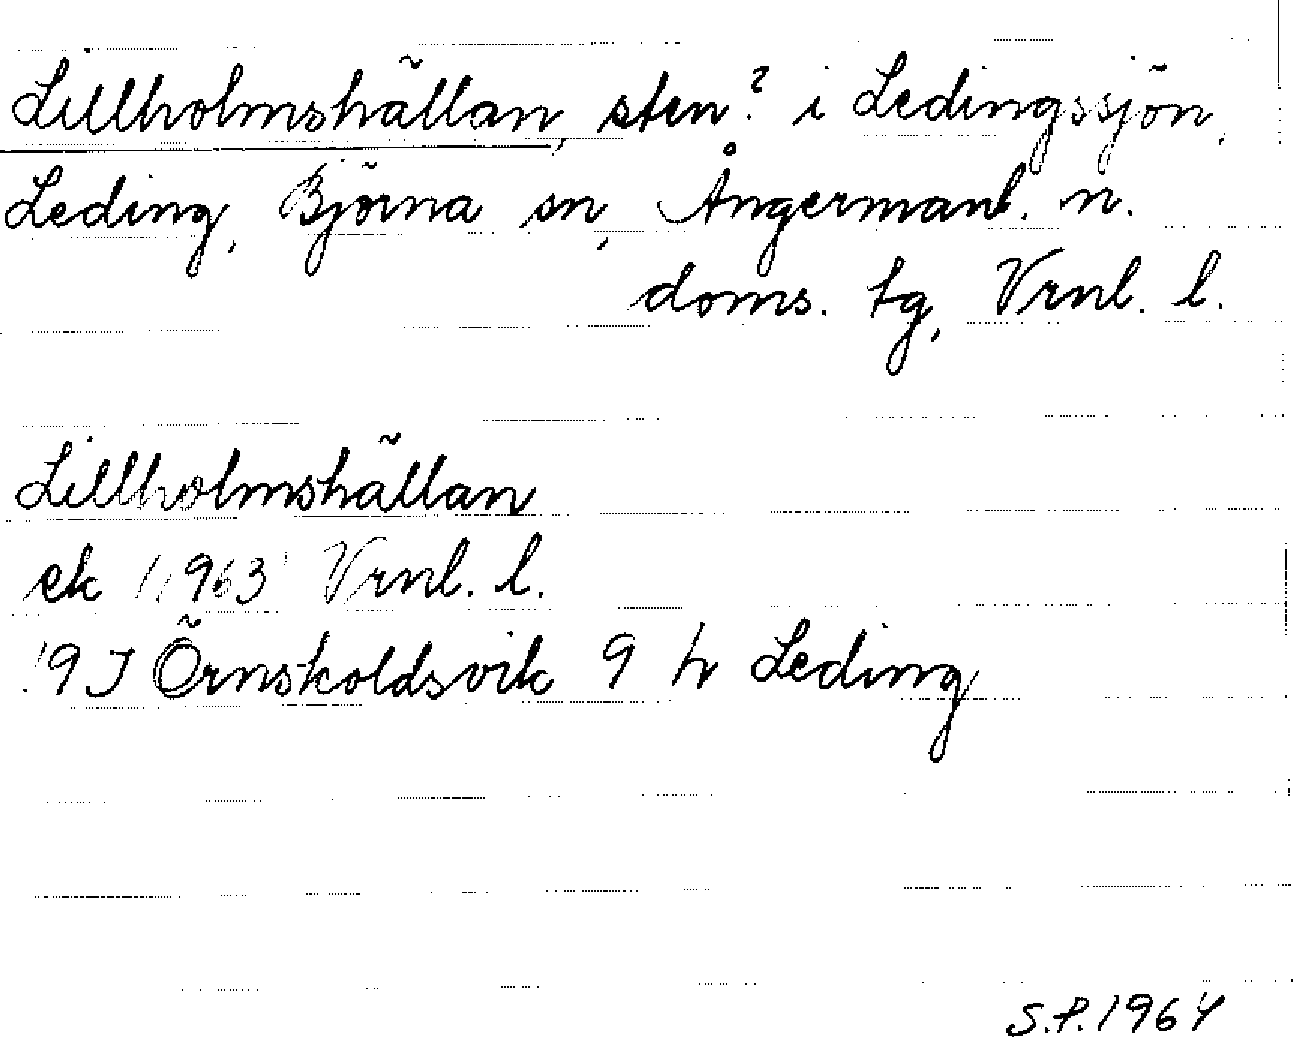 Lillholmshällan, sten? i Ledingssjön,
Leding, Björna sn, Ångermanl. n.
doms. tg, Vrnl. l.
Lillholmshällan
ek (1963) Vrnl. l.
19 J Örnsköldsvik 9 h Leding
S.P. 1964